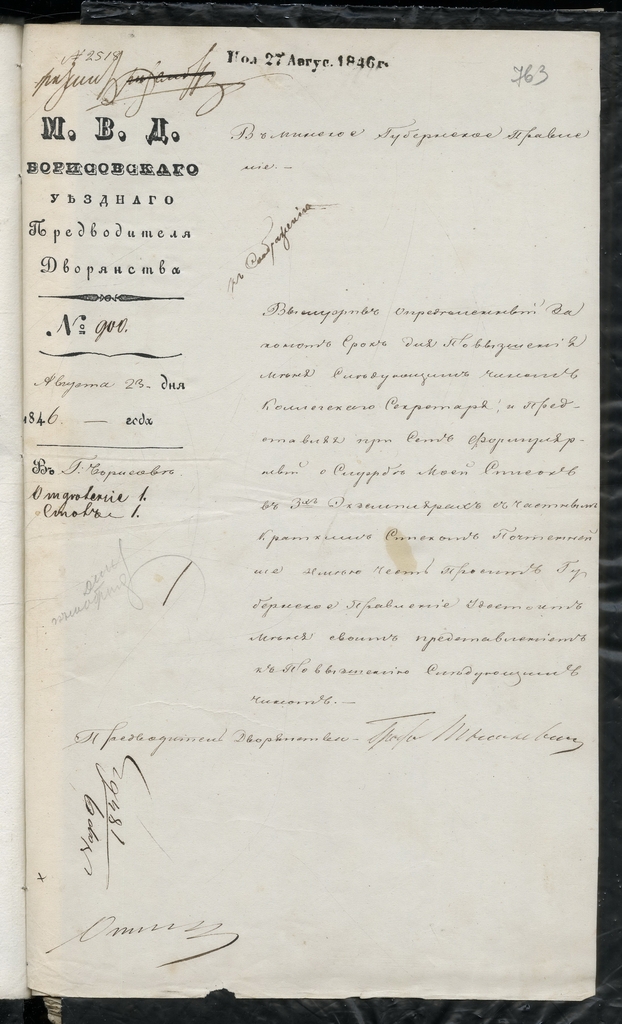 № 2518
Пол. 27 Авгус. 1846 г.
763
М. В. Д.
БОРИСОВСКАГО
УѢЗДНАГО
Предводителя
Дворянства
№ 900.
Августа 23 дня
1846 — года
Въ Г: Борисовѣ
Въ Минское Губернское Правле
ніе. —
къ Соображенію
Выслуживъ определенный За
кономъ Срокъ для Повышенія
меня Слѣдующимъ чиномъ
Коллегскаго Секретаря, и Пред-
ставляя при Семъ Формуляр-
ный о Службѣ Моей Списокъ
въ 3хъ Экземплярахъ съ Частнымъ
Краткимъ Спискомъ Почтенней
ше имѣю честь Просить Гу
бернское Правленіе Удостоить
меня своимъ представленіемъ
къ Повышенію Слѣдующимъ
чиномъ. —
Предводитель Дворянства Графъ